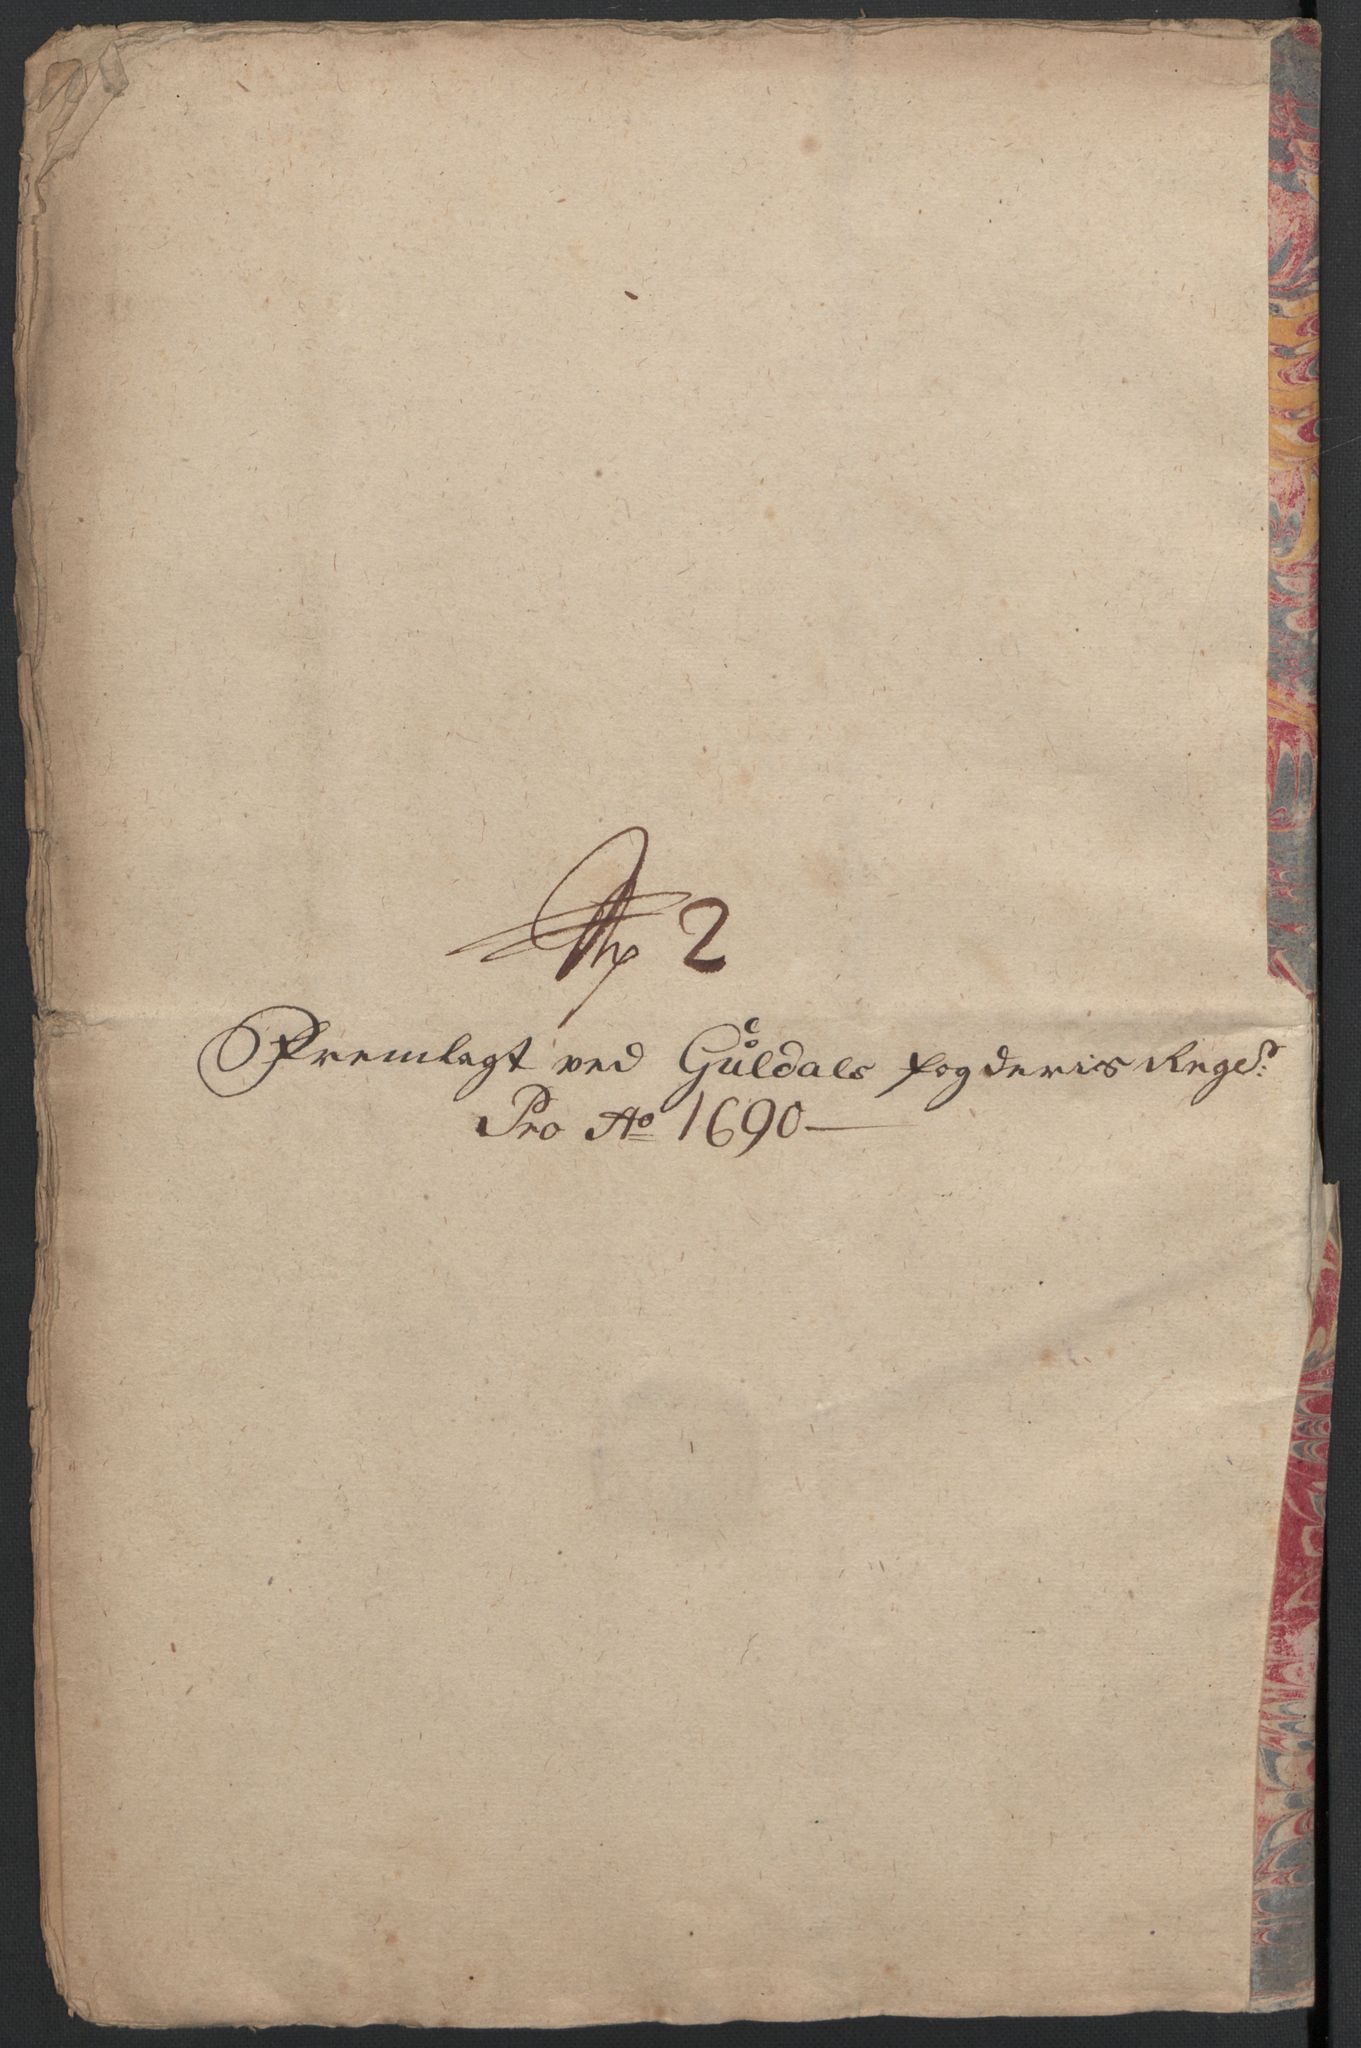 No 2
Fremlagt ved Guldals fogderis Regs:
Pro Ao 1690